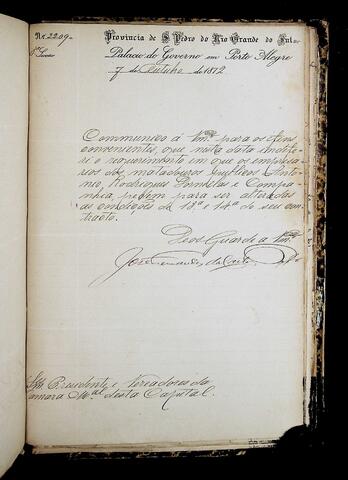 N. 2209-
Provincia de S. Pedro do Rio Grande do Sul-
Palacio do Governo em Porto Alegre
7 de Outubro de 1872
Communico á Vmces para os fins
convenientes, que nesta data indefe-
ri o requerimento em que os empresa-
rios dos matadouros publicos Anto-
nio Rodrigues Dornelas e Compa-
nhia, pedem para ser alteradas
as condições de 13ª e 14ª do seu con-
tracto.
Deos Guarde a Vmces
José Fernandes da
Presidente e Vereadores da
Camara Mal desta Capital.